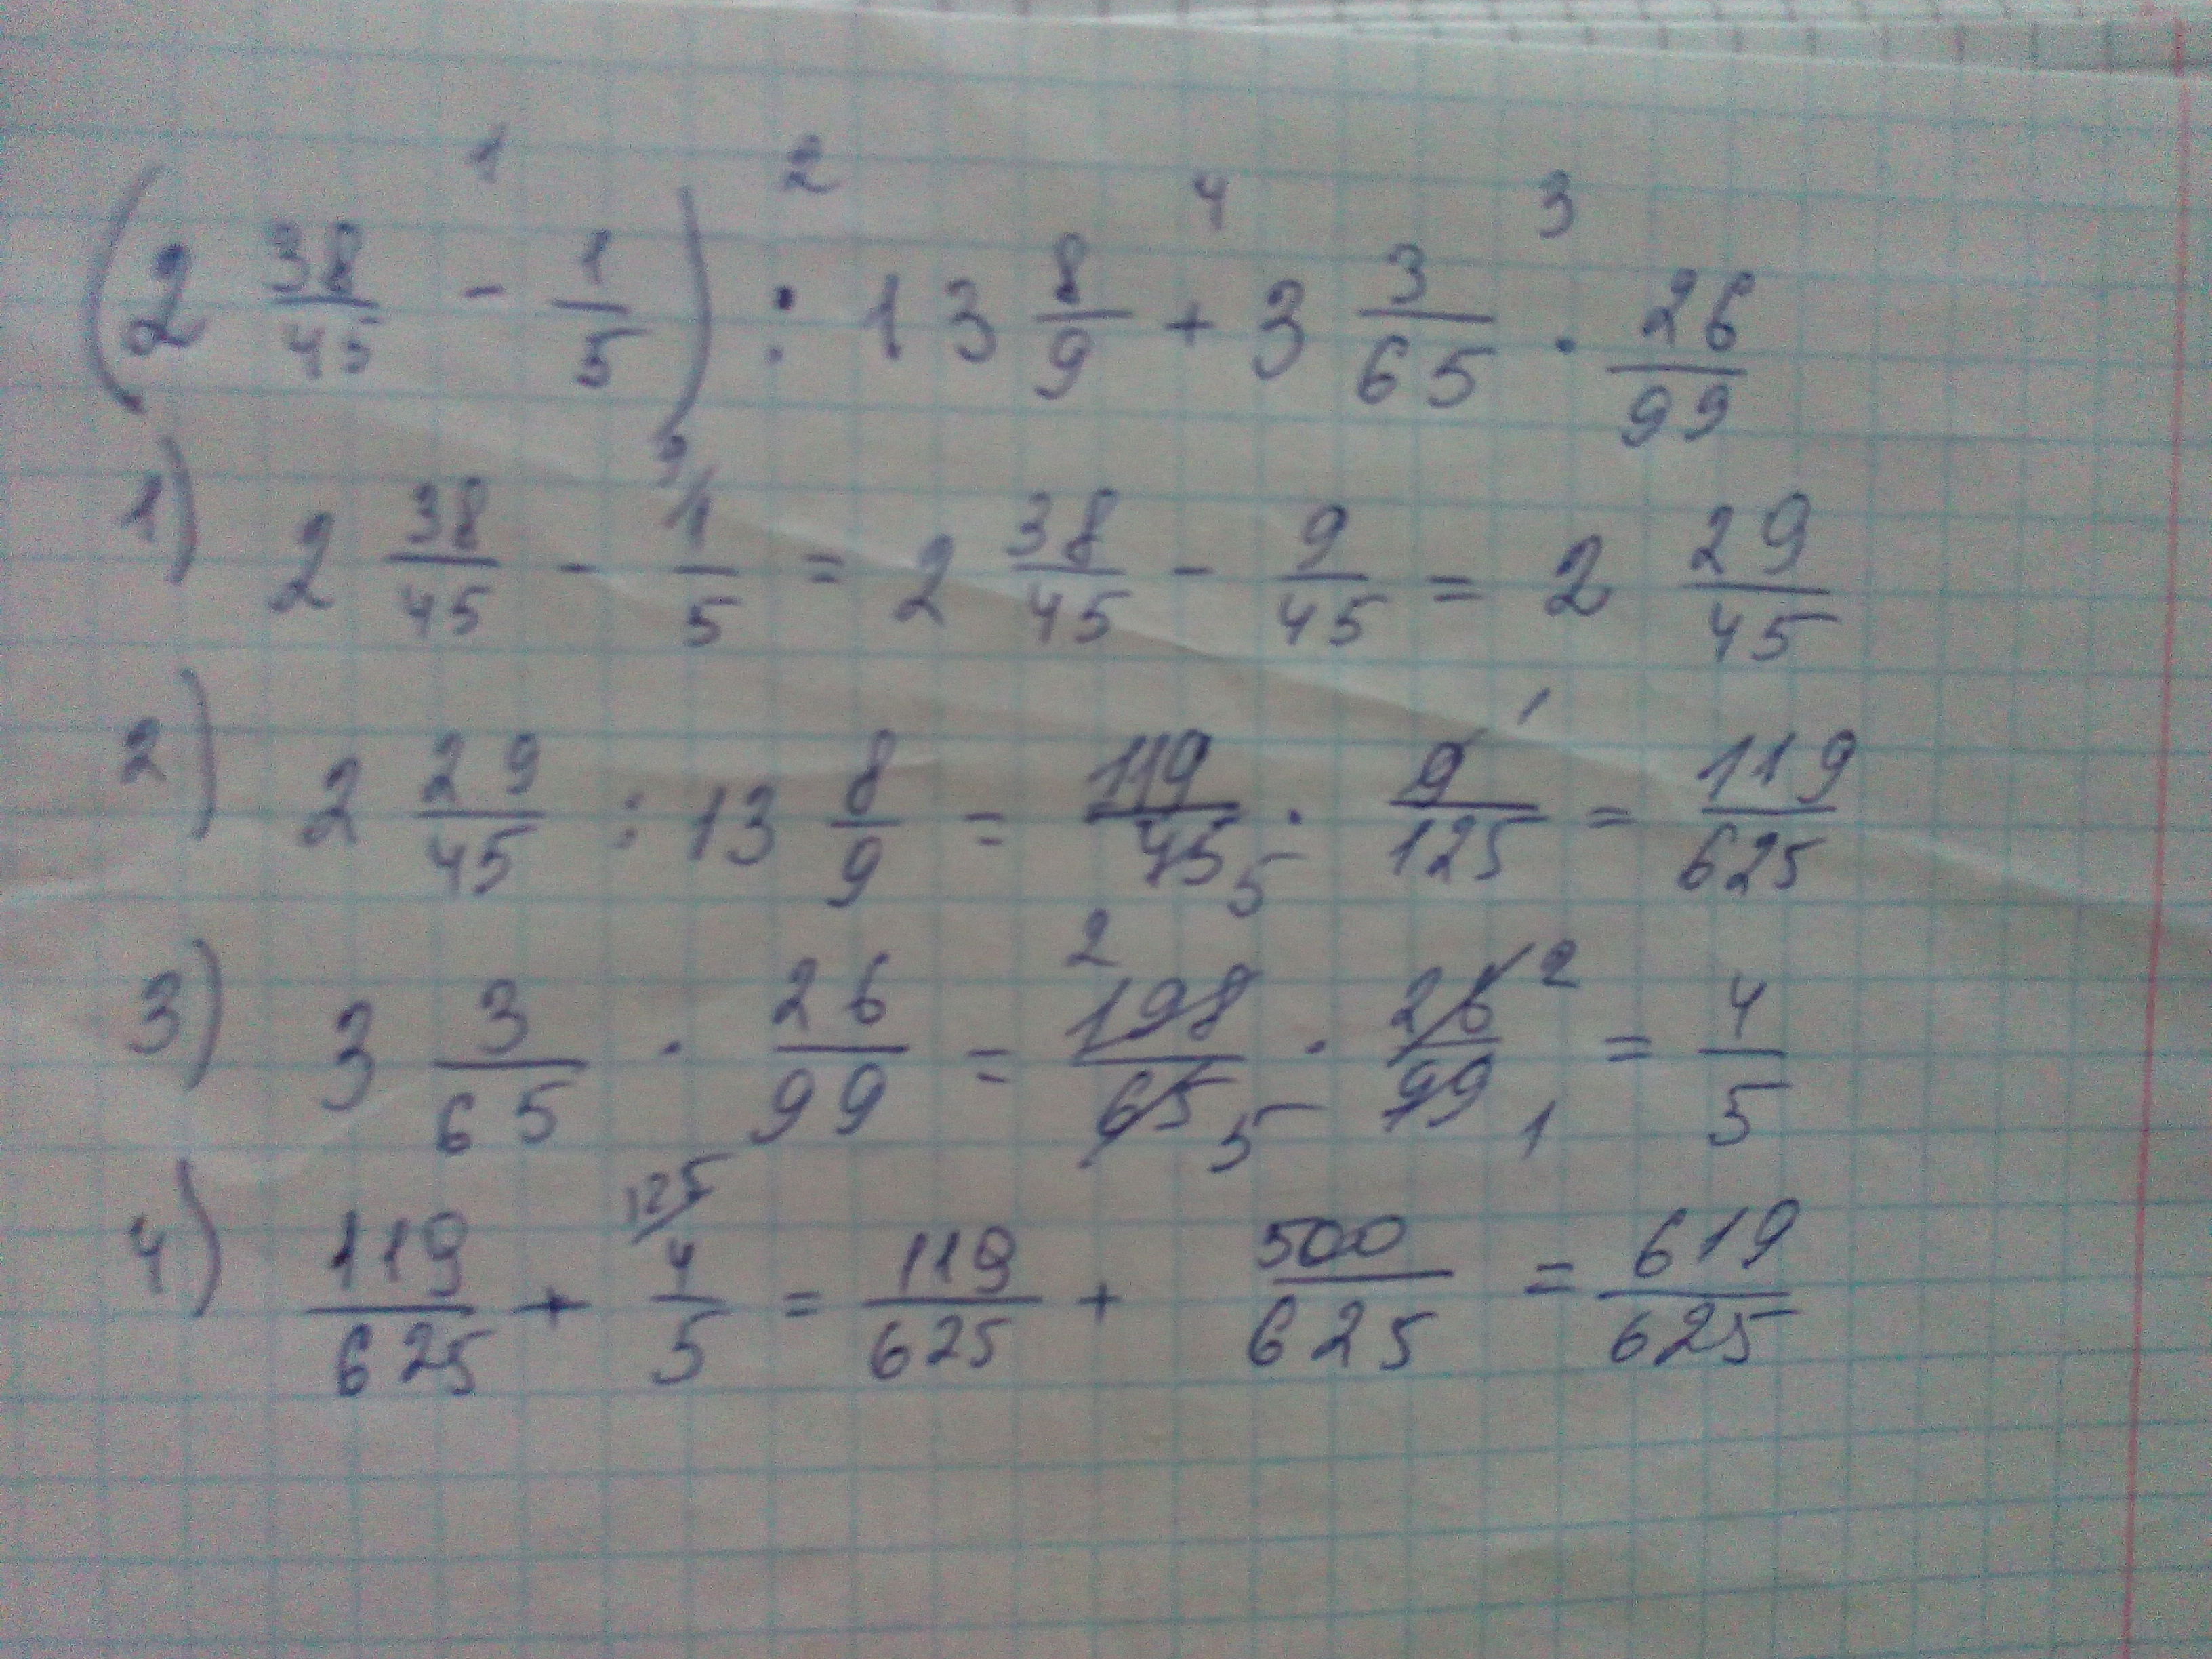 1 2 4 3
(2 38/45 - 1/5) : 13 8/9 + 3 3/65 · 26/99
1) 2 38/45 - 1/5 9/ = 2 38/45 - 9/45 = 2 29/45
2) 2 29/45 : 13 8/9 = 119/45 5 · 9/125 1 = 119/625
3) 3 3/65 · 26/99 = 2 198/65 5 · 26/99 2 1 = 4/5
4) 119/625 + 125/ 4/5 = 119/625 + 500/625 = 619/625